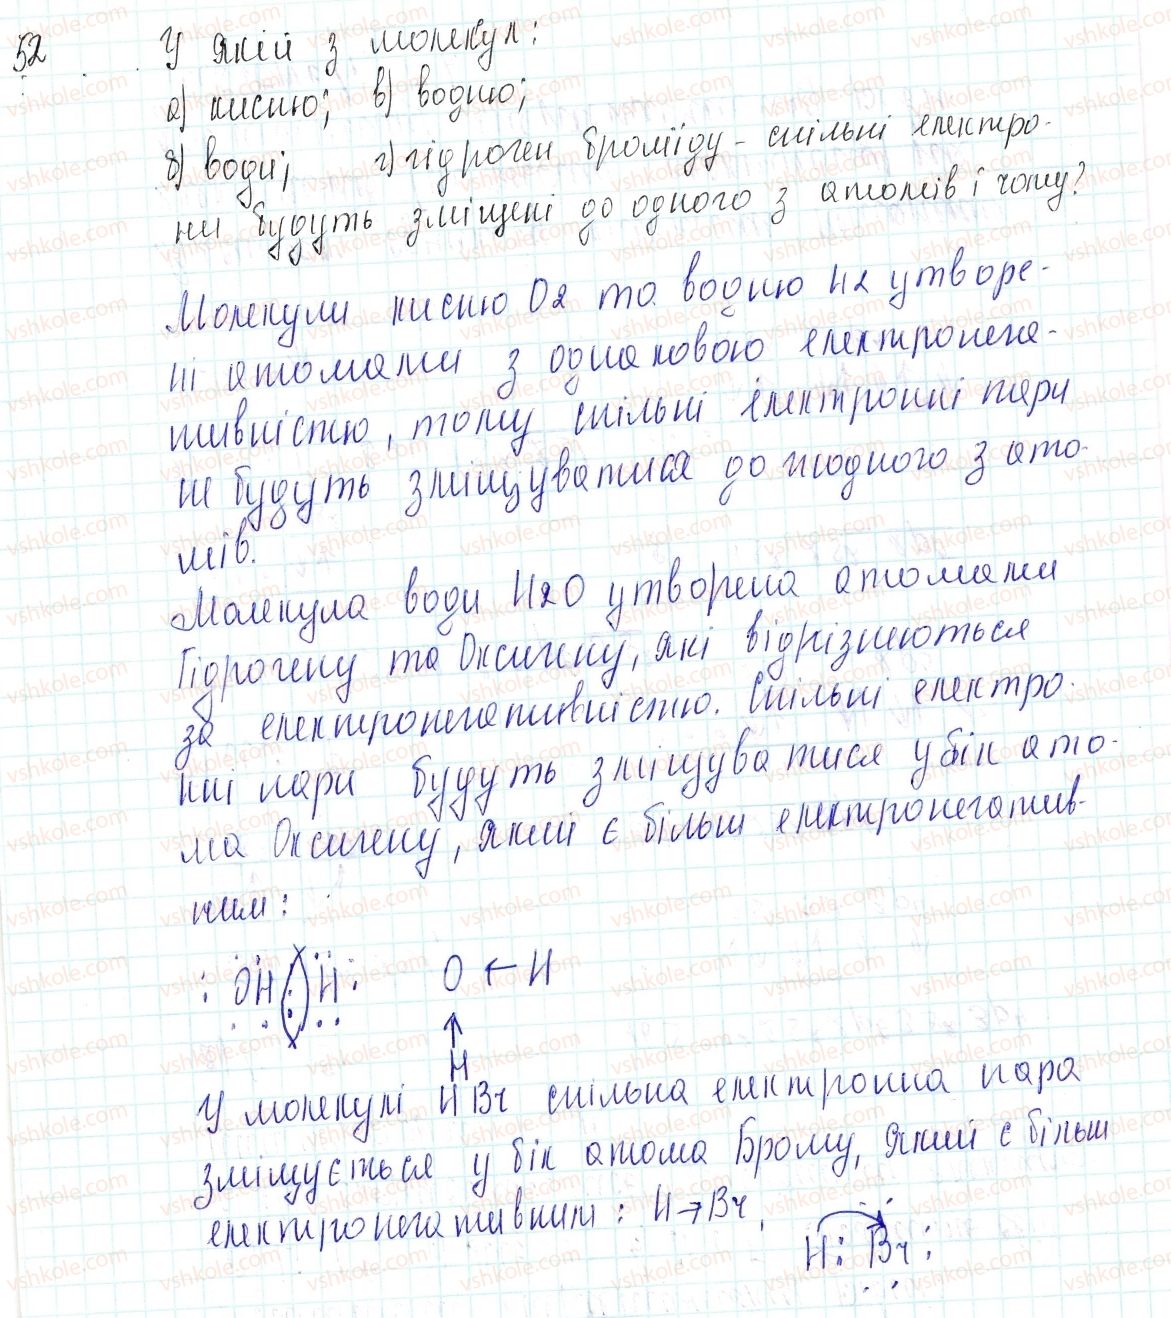 52 У якій з молекул:
а) кисню; в) водню;
б) води; г) гідроген броміду - спільні електро-
ни будуть зміщені до одного з атомів і чому?
Молекули кисню O2 та водню H2 утворе-
ні атомами з однаковою електронега-
тивністю, тому спільні електронні пари
не будуть зміщуватися до жодного з ато-
мів.
Молекула води H2O утворена атомами
Гідрогену та Оксигену, які відрізняються
за електронегативністю. Спільні електро-
нні пари будуть зміщуватися у бік ато-
ма Оксигену, який є більш електронегатив-
ним:
: ОН (:) Н : O ← H
↑
H
У молекулі HBr спільна електронна пара
зміщується у бік атома Брому, який є більш
електронегативним: H→Br,
H : Br :